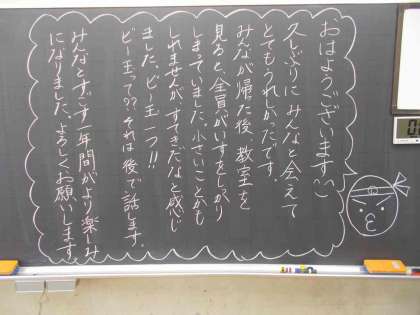 おはようございます
久しぶりにみんなと会えて
とてもうれしかったです。
みんなが帰った後、教室を
見ると全員がいすをしっかり
しまっていました。小さいことかも
しれませんがすてきだなと感じ
ました。ビー玉一つ!!
ビー玉って??それは後で話します。
みんなとすごす一年間がより楽しみ
になりました。よろしくお願いします。